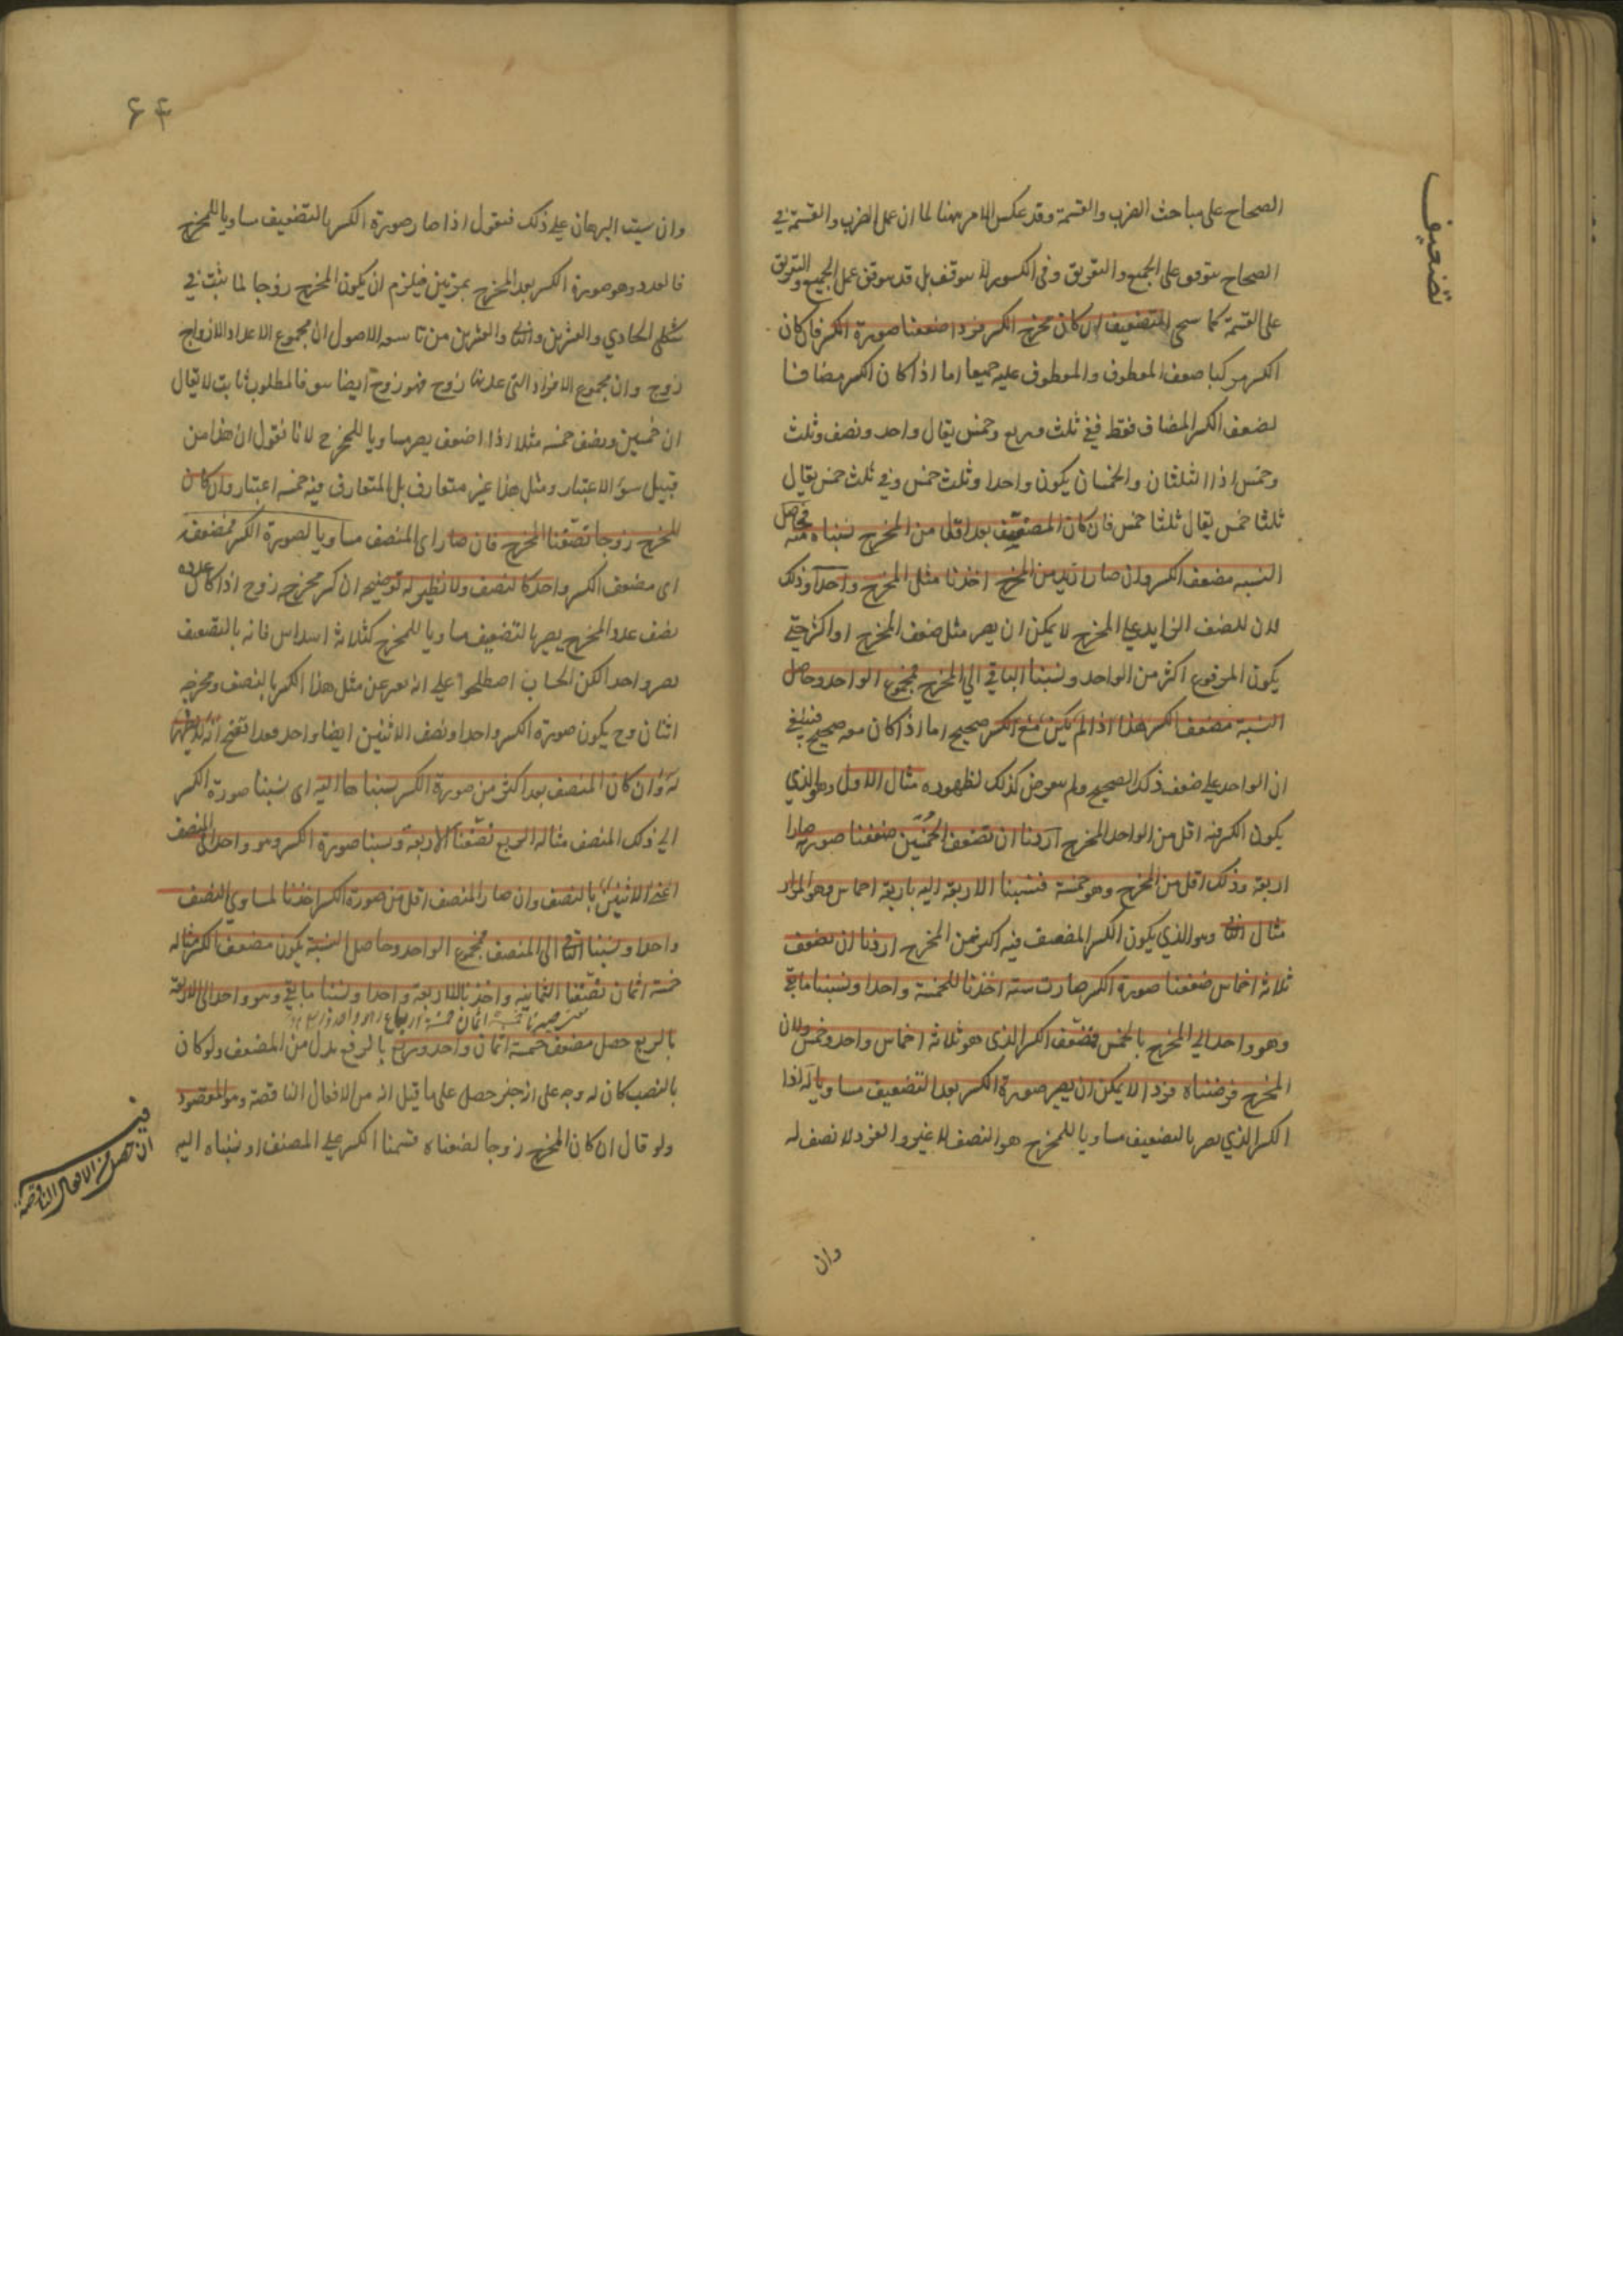 تضعيف
الصحاح على مباحث الضرب والقسمة وقد عكس الامر ههنا لما ان عمل الضرب والقسمة في
الصحاح يتوقف على الجمع والتفريق وفى الكسور لا يتوقف بل قد يتوقف عمل الجمع والتفريق
على القسمة كما سيجى التضعيف ان كان مخرج الكسر فردا ضعفنا صورة الكسر فان كان
الكسر مركبا ضعف المعطوف والمعطوف عليه جميعا اما اذا كان الكسر مضافا
لضعف الكسر المضاف فقط ففي ثلث وربع وخمس يقال واحد ونصف وثلث
وخمس اذ الثلثان والخمسان يكون واحدا وثلث خمس وفي ثلث خمس يقال
ثلثا خمس يقال ثلثا خمس فان كان المضعف بعد اقل من المخرج نسبناه منه فحاصل
النسبه مضعف الكسر وان صار ازيد من المخرج اخذنا مثل المخرج واحدا وذلك
لان للضعف الزايد على المخرج لا يمكن ان يصير مثل ضعف المخرج او اكثر حتى
يكون المرفوع اكثر من الواحد ونسبنا الباقي الي المخرج فمجموع الواحد وحاصل
النسبة مضعف الكسر هذا اذا لم يكن مع الكسر صحيح اما اذا كان معه صحيح فينبغي
ان الواحد على ضعف ذلك الصحيح ولم يتعرض كذلك لظهوره مثال الاول وهو الذي
يكون الكسر فيه اقل من الواحد المخرج اردنا ان نضعف الخمسين ضعفنا صورته صارا
اربعة وذلك اقل من المخرج وهو خمسة فنسبنا الاربعة اليه باربعة اخماس وهو المراد
مثال الثانى وهو الذي يكون الكسر المضعف فيه اكثر من المخرج اردنا ان نضعف
ثلاثة اخماس ضعفنا صورة الكسر صارت ستة اخذنا للخمسة واحدا ونسبنا ما بقي
وهو واحد الي المخرج بالخمس فضعف الكسر الذى هو ثلاثة اخماس واحد وخمس ولان
المخرج فرضناه فردا لا يمكن ان يصير صورة الكسر بعد التضعيف مساويا له لذا
الكسر الذي يصير بالتضعيف مساويا للمخرج هو النصف لا غير والفرد لا نصف له
وان
۶۴
وان شيت البرهان على ذلك فنقول اذا صار صورة الكسر بالتضعيف مساويا للمخرج
فالعدد وهو صورة الكسر يعد المخرج بمرتين فيلزم ان يكون المخرج زوجا لما ثبت في
شكلى الحادي والعشرين والثانى والعشرين من تاسعه الاصول ان مجموع الاعداد الازواج
زوج وان مجموع الافراد التى عدتها زوج فهو زوج ايضا فالمطلوب ثابت لا يقال
ان خمسين ونصف خمسه مثلا اذا اضعف يصير مساويا للمخرج لانا نقول ان هذا من
قبيل سوء الاعتبار ومثل هذا غير متعارف بل المتعارف فيه خمسه اعتبار وان كان
المخرج زوجا نصفنا المخرج فان صار اى المنصف مساويا لصورة الكسر فمضعفه
اى مضعف الكسر واحد كالنصف ولا نظير له توضيحه ان كسر مخرجه زوج اذا كان عدده
نصف عدد المخرج يصير بالتضعيف مساويا للمخرج كثلاثة اسداس فانه بالتضعيف
يصير واحدا لكن الحساب اصطلحوا على انه يعبر عن مثل هذا الكسر بالنصف ومخرجه
اثنان وح يكون صورة الكسر واحدا ونصف الاثنين ايضا واحد فقد اتضح انه لا نظير
له وان كان المنصف بعد اكثر من صورة الكسر نسبناها اليه اى نسبنا صورة الكسر
الي ذلك المنصف مثاله الربع نصفنا الاربعة ونسبنا صورة الكسر وهو واحد الى المنصف
اعنى الاثنين بالنصف وان صار المنصف اقل من صورة الكسر اخذنا لمساوى النصف
واحدا ونسبنا الباقى الى المنصف فمجموع الواحد وحاصل النسبة يكون مضعف الكسر مثاله
خمسة اثمان نصفنا الثمانية واخذنا للاربعة واحدا ونسبنا ما بقي وهو واحد الى الاربعة
بالربع حصل مضعف خمسة اثمان واحد وربع بالرفع بدل من المضعف ولو كان
بالنصب كان له وجه على انه خبر حصل على ما قيل انه من الافعال الناقصة وهو المقصود
ولو قال ان كان المخرج زوجا نصفناه قسمنا الكسر على المصنف او نسبناه اليه
فيه
ان حصل من الافعال الناقصة